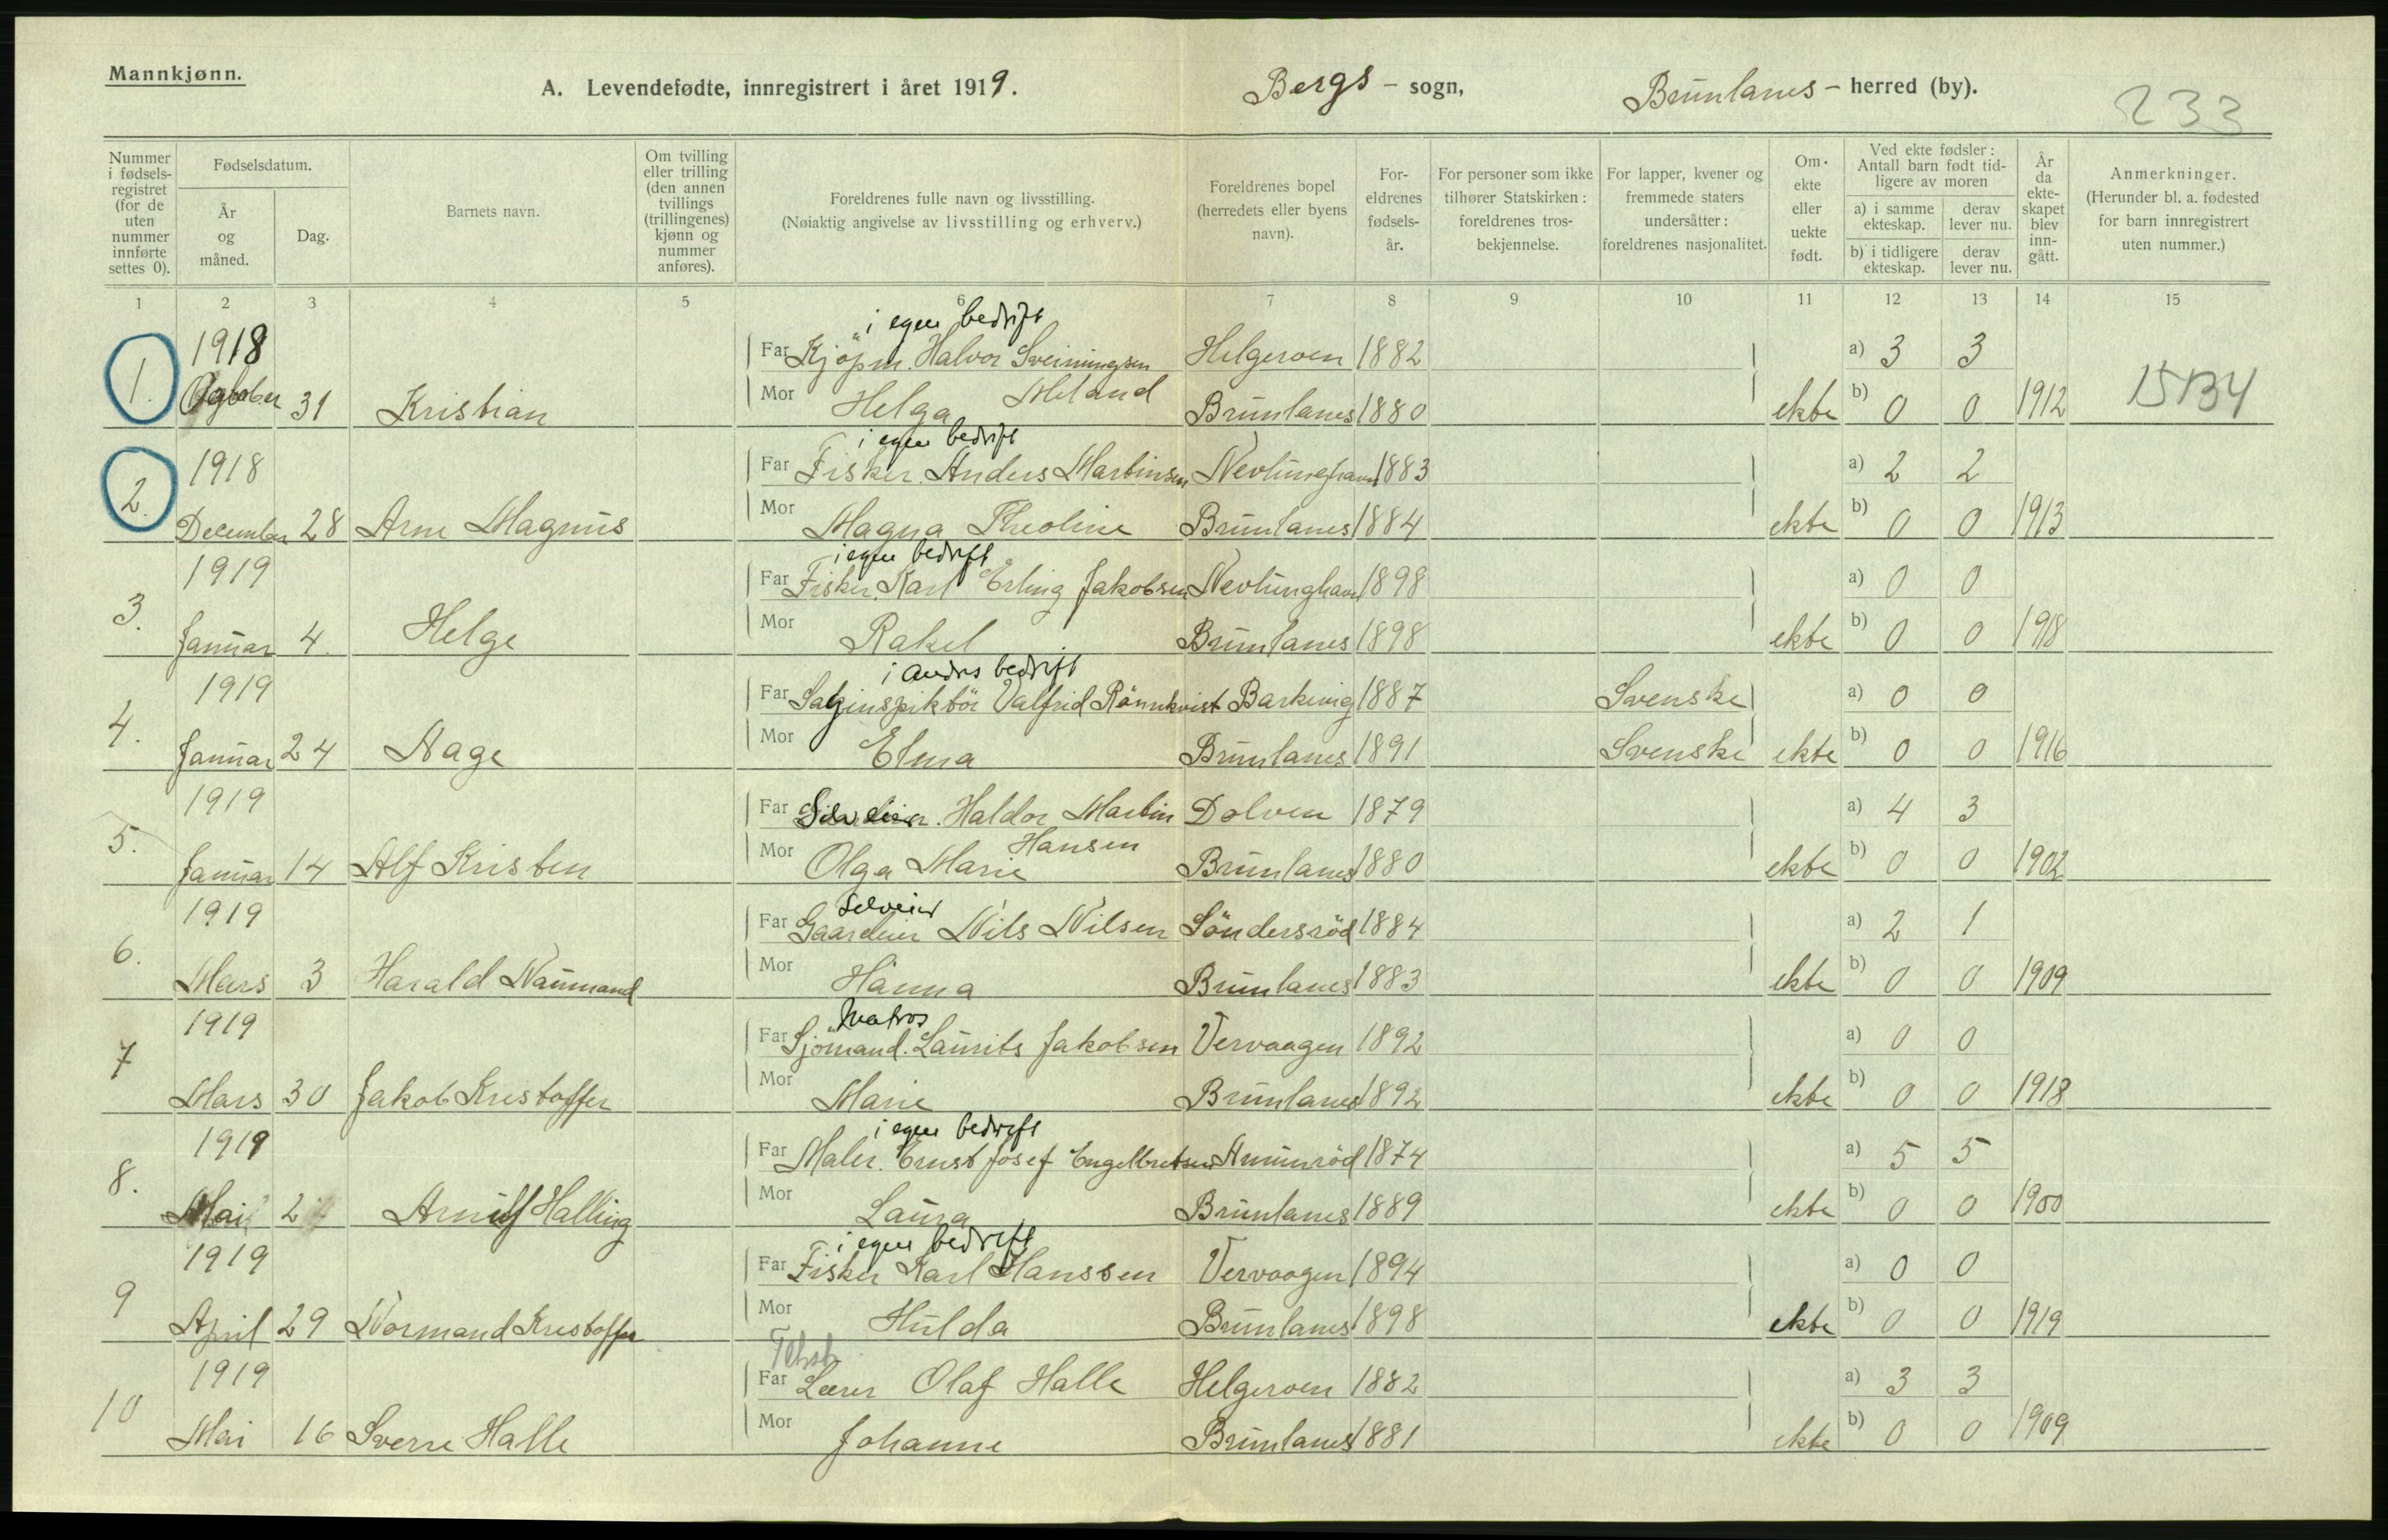 Mannkjønn.
A. Levendefødte, innregistrert i året 1919. Bergs - sogn, Brunlanes - herred (by). 233
Nummer i fødsels-registret (for de uten nummer innførte settes 0).
Fødselsdatum.
År og måned.
Dag.
Barnets navn.
Om tvilling eller trilling (den annen tvillings (trillingenes) kjønn og nummer anføres).
Foreldrenes fulle navn og livsstilling.
(Nøiaktig angivelse av livsstilling og erhverv.)
Foreldrenes bopel (herredets eller byens navn).
For-eldrenes fødsels-år.
For personer som ikke tilhører Statskirken: foreldrenes tros-bekjennelse.
For lapper, kvener og fremmede staters undersåtter: foreldrenes nasjonalitet.
Om ekte eller uekte født.
Ved ekte fødsler: Antall barn født tid-ligere av moren
a) i samme ekteskap. derav lever nu.
b) i tidligere ekteskap. derav lever nu.
År da ekte-skapet blev inn-gått.
Anmerkninger.
(Herunder bl. a. fødested for barn innregistrert uten nummer.)
1 2 3 4 5 6 7 8 9 10 11 12 13 14 15
i egen bedrift
1918 Far Kjöpm. Halvor Sveinungsen Helgeroen 1882 a) 3 3
1. October 31 Kristian Mor Helga Meland Brunlanes 1880 ekte b) 0 0 1912 15134
i egen bedrift
1918 Far Fisker. Anders Martinsen Nevlunghavn 1883 a) 2 2
2. December 28 Arne Magnus Mor Magna Theoline Brunlanes 1884 ekte b) 0 0 1913
i egen bedrift
1919 Far Fisker. Karl Erling Jakobsen Nevlunghavn 1898 a) 0 0
3. Januar 4. Helge Mor Rakel Brunlanes 1898 ekte b) 0 0 1918
i andres bedrift
1919 Far Valfrid Rönnkvist Barkevig 1887 Svenske a) 0 0
4. Januar 24 Aage Mor Elma Brunlanes 1891 Svenske ekte b) 0 0 1916
1919 Far Haldor Martin Dolven 1879 a) 4 3
Hansen
5. Januar 14 Alf Kristen Mor Olga Marie Brunlanes 1880 ekte b) 0 0 1902
Selveier
1919 Far Gaardeier Nils Nilsen Söndersröd 1884 a) 2 1
6. Mars 3 Harald Naumand Mor Hanna Brunlanes 1883 ekte b) 0 0 1909
Matros
1919 Far Sjömand. Laurits Jakobsen Vervaagen 1892 a) 0 0
7 Mars 30 Jakob Kristoffer Mor Marie Brunlanes 1892 ekte b) 0 0 1918
i egen bedrift
1919 Far Maler. Ernst Josef Engelbretsen 1874 a) 5 5
8. Mai 2 Arnulf Halling Mor Laura Brunlanes 1889 ekte b) 0 0 1900
i egen bedrift
1919 Far Fisker Karl Hanssen Vervaagen 1894 a) 0 0
9 April 29 Normand Kristoffer Mor Hulda Brunlanes 1898 ekte b) 0 0 1919
1919 Far Lærer Olaf Halle Helgeroen 1882 a) 3 3
10 Mai 16 Sverre Halle Mor Johanne Brunlanes 1881 ekte b) 0 0 1909